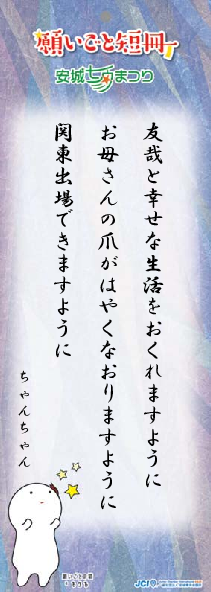 願いごと短冊
安城七夕まつり
友哉と幸せな生活をおくれますように
お母さんの爪がはやくなおりますように
関東出場できますように
ちゃんちゃん
願いごと短冊
JCI